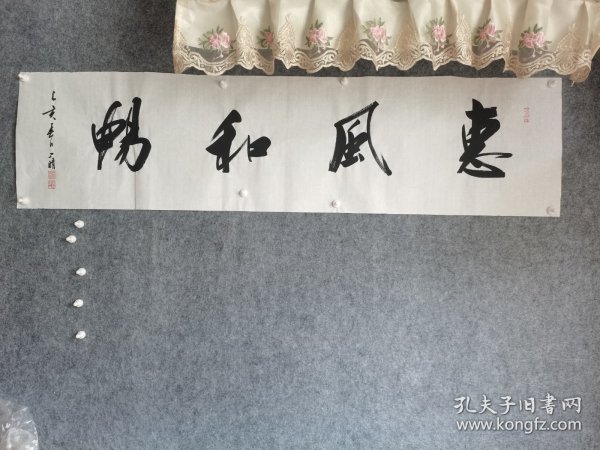 惠風和暢
乙亥春月
孔夫子旧書网
www.kongfz.com